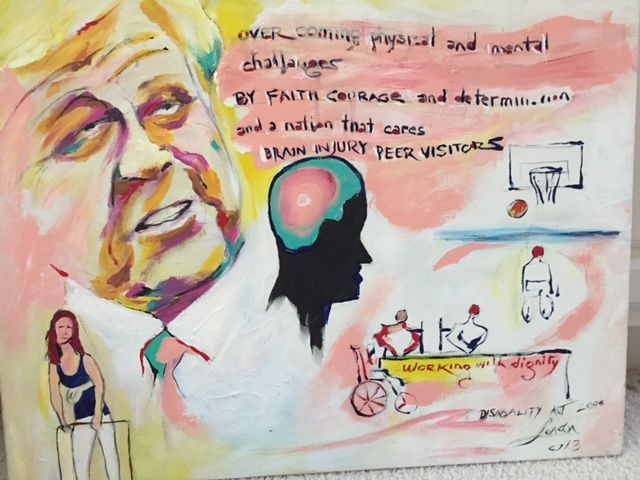 OVER coming physical and mental
challanges
BY FAITH COURAGE and
and a nation that cares
BRAIN INJURY PEER VISITORS
working with dignity
DISABALITY
London